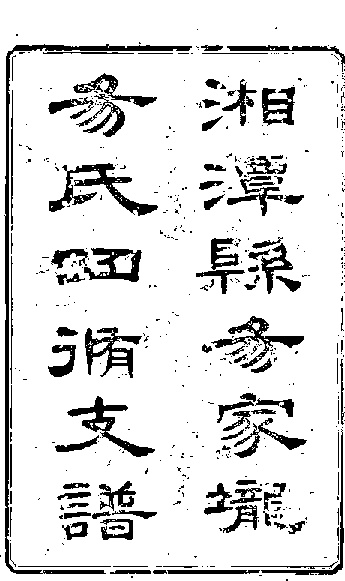 湘潭縣易家壠
易氏四脩支譜